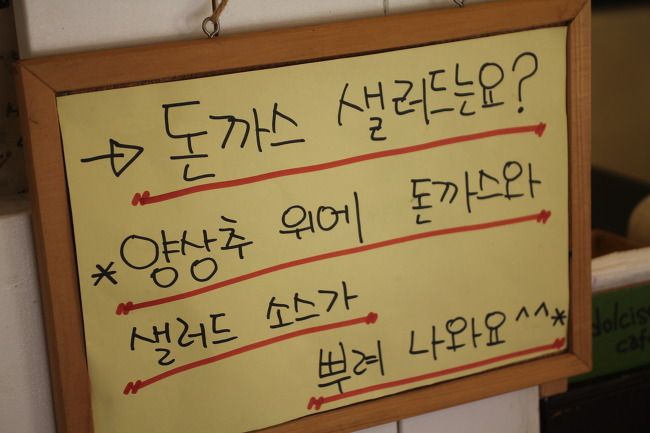 → 돈까스 샐러드는요?
*양상추 위에 돈까스와
샐러드 소스가
뿌려 나와요^^*
dolcis
cafe